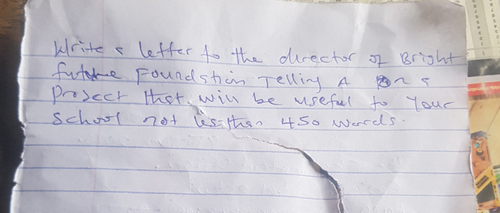 Write a letter to the director of Bright
future Foundation Telling A on a
Project that will be useful to your
school not less than 450 words.